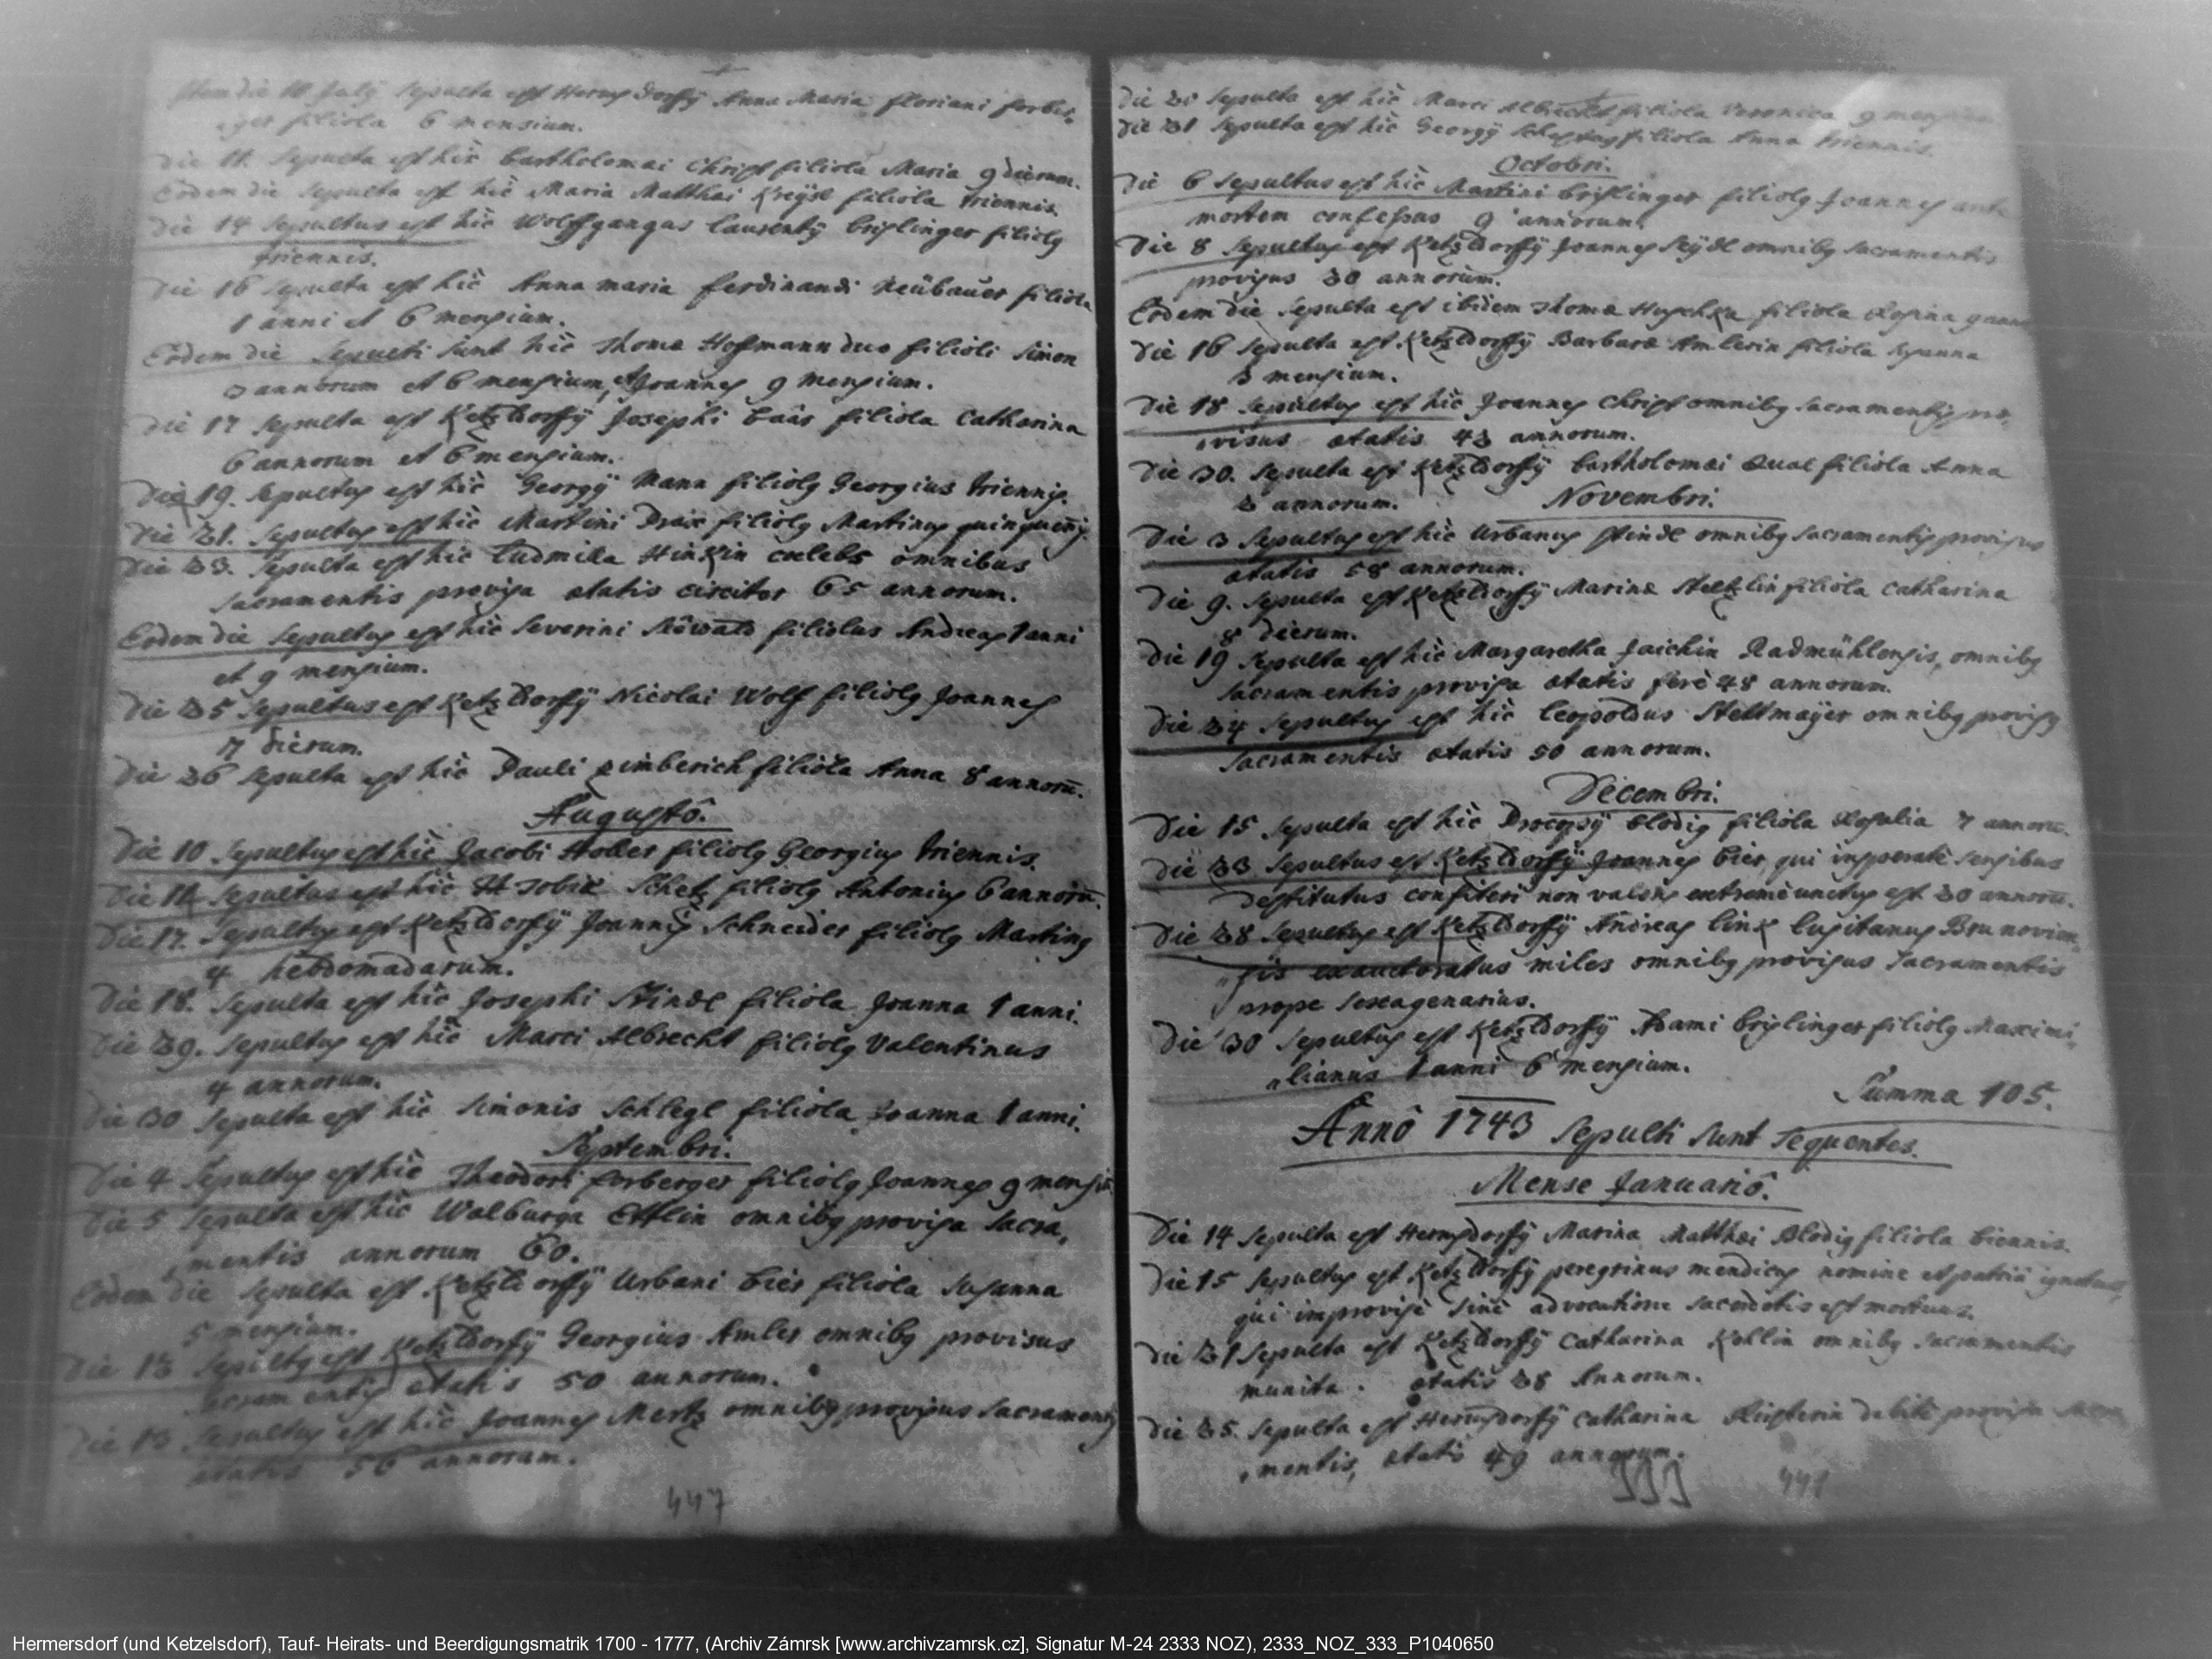 Item die 10 July Sepulta est Hermsdorffÿ Anna Maria floriani forber,
ger filiola 6 mensium.
Die 11. Sepulta est hic Bartholomæi Christ filiola Maria 9 dierum.
Eodem die Sepulta est hic Maria Matthæi Kreÿsl filiola triennis.
Die 14 Sepultus est hic Wolffgangus laurentÿ brislinger filiolq
triennis.
Die 16 Sepulta est hic Anna maria ferdinandi Neübauer filiola
1 anni et 6 mensium.
Eodem die Sepulti sunt hic Thomæ Hofmann duo filioli Simon
3 annorum et 6 mensium, et Joannes 9 mensium.
Die 17 Sepulta est KetzlDorffÿ Josephi baar filiola Catharina
6 annorum et 6 mensium.
Die 19. Sepultus est hic Georgÿ Mann filiolq Georgius triennis.
Die 21. Sepultus est hic Martini Drax filiolq Martinus quinquenñ.
Die 23. Sepulta est hic Ludmilla HinKin cælebs omnibus
sacramentis provisa ætatis circiter 65 annorum.
Eodem die Sepultus est hic Severini filiolus Andreas 1 anni
et 9 mensium.
Die 25 Sepultus est KetzlDorffÿ Nicolai Wolf filiolq Joannes
17 dierum.
Die 26 Sepulta est hic Pauli Zimberich filiola Anna 8 annorũ.
Augustô.
Die 10 Sepultus est hic Jacobi Holler filiolq Georgius triennis.
Die 11 Sepultus est hic Tobiæ Schetz filiolq Antonius 6 annorũ.
Die 17. Sepultus est KetzlDorffÿ Joannis Schneider filiolq Martinq
4 hebdomadarum.
Die 18. Sepulta est hic Josephi Stindl filiola Joanna 1 anni.
Die 29. Sepultus est hic Marci Albrecht filiolq Valentinus
4 annorum.
Die 30 Sepulta est hic Simonis Schlegl filiola Joanna 1 anni.
Septembri.
Die 4 Sepultus est hic Theodori forberger filiolq Joannes 9 mensiũ
Die 5 Sepulta est hic Walburga Ettlin omnibq provisa Sacra,
mentis annorum 60.
Eodem die Sepulta est KetzlDorffÿ Urbani bier filiola Susanna
5 mensium.
Die 12 Sepultq est KetzlDorffÿ Georgius Amler omnibq provisus
sacramentis ætatis 50 annorum.
Die 13 Sepultus est hic Joannes Mertz omnibq provisus Sacramentis
ætatis 56 annorum.
447
Die 21 Sepulta est hic Marci Albrecht filiola Veronica 9 mensium
Die 21 Sepulta est hic Georgÿ filiola Anna triennis.
Octobri.
Die 6 Sepultus est hic Martini brislinger filiolq Joannes ante
mortem confessus 9 annorum.
Die 8 Sepultus est KetzlDorffÿ Joannes Seÿdl omnibq sacramentis
provisus 30 annorum.
Eodem die Sepulta est ibidem Thomæ HuschKa filiola Rosina 9 ann
Die 16 Sepulta est KetzlDorffÿ Barbaræ Amlerin filiola Susanna
3 mensium.
Die 18 Sepultus est hic Joannes Christ omnibq sacramentis pro,
visus ætatis 42 annorum.
Die 30. Sepulta est KetzlDorffÿ bartholomæi filiola Anna
2 annorum.
Novembri.
Die 3 Sepultus est hic Urbanus Stindl omnibq sacramentis provisus
ætatis 58 annorum.
Die 9. Sepulta est KetzlDorffÿ Marinæ Steltzlin filiola Catharina
8 dierum.
Die 19 Sepulta est hic Margaretha Jaichin Radmühlensis, omnibq
sacramentis provisa ætatis ferè 48 annorum.
Die 24 Sepultus est hic Leopoldus Steltmaÿer omnibq provisq
sacramentis ætatis 50 annorum.
Decembri.
Die 15 Sepulta est hic Procopÿ blodig filiola Rosalia 7 annorũ.
Die 23 Sepultus est KetzlDorffÿ Joannes bier, qui insperatè sensibus
destitutus confiteri non valens extremè unctus est 30 annorũ.
Die 28 Sepultus est KetzlDorffÿ Andreas linK lusitanus Brunovien,
sis exauctoratus miles omnibq provisus Sacramentis
prope sexagenarius.
Die 30 Sepultus est KetzlDorffÿ Adami brislinger filiolq Maximi,
lianus 1 anni 6 mensium.
Summa 105.
Annô 1743 Sepulti sunt Sequentes.
Mense Januariô.
Die 14 Sepulta est Hermsdorffÿ Marina Matthæi Blodig filiola biennis.
Die 15 Sepultus est KetzlDorffÿ peregrinus mendicus nomine et patriâ ignotus,
qui improvisè sine advocatione sacerdotis est mortuus.
Die 21 Sepulta est KetzlDorffÿ Catharina Kohlin omnibq sacramentis
munita. ætatis 28 Annorum.
Die 25. Sepulta est Hermsdorffÿ Catharina debitè provisa sacra
mentis, ætatis 49 annorum.
333
441
Hermersdorf (und Ketzelsdorf), Tauf- Heirats- und Beerdigungsmatrik 1700 - 1777, (Archiv Zámrsk [www.archivzamrsk.cz], Signatur M-24 2333 NOZ), 2333_NOZ_333_P1040650